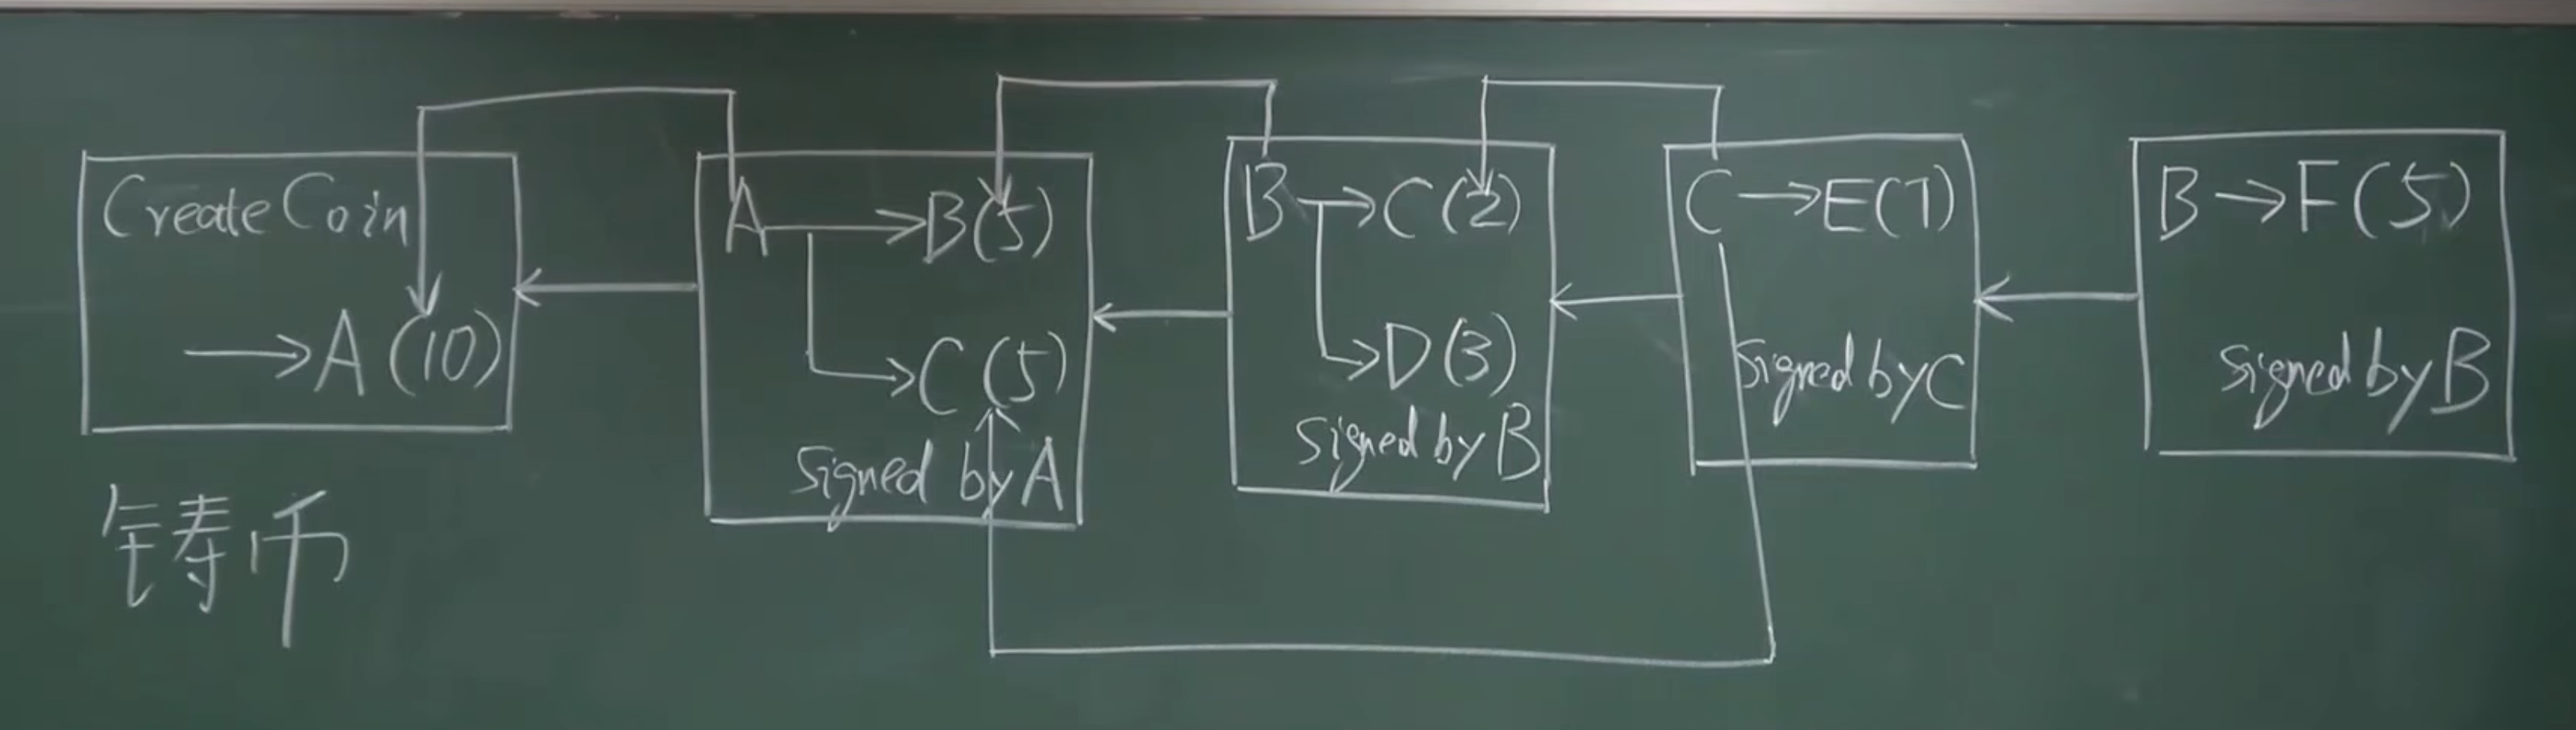 CreateCoin
→A(10)
A→B(5)
→C(5)
signed by A
B→C(2)
→D(3)
signed by B
C→E(7)
signed by C
B→F(5)
signed by B
铸币